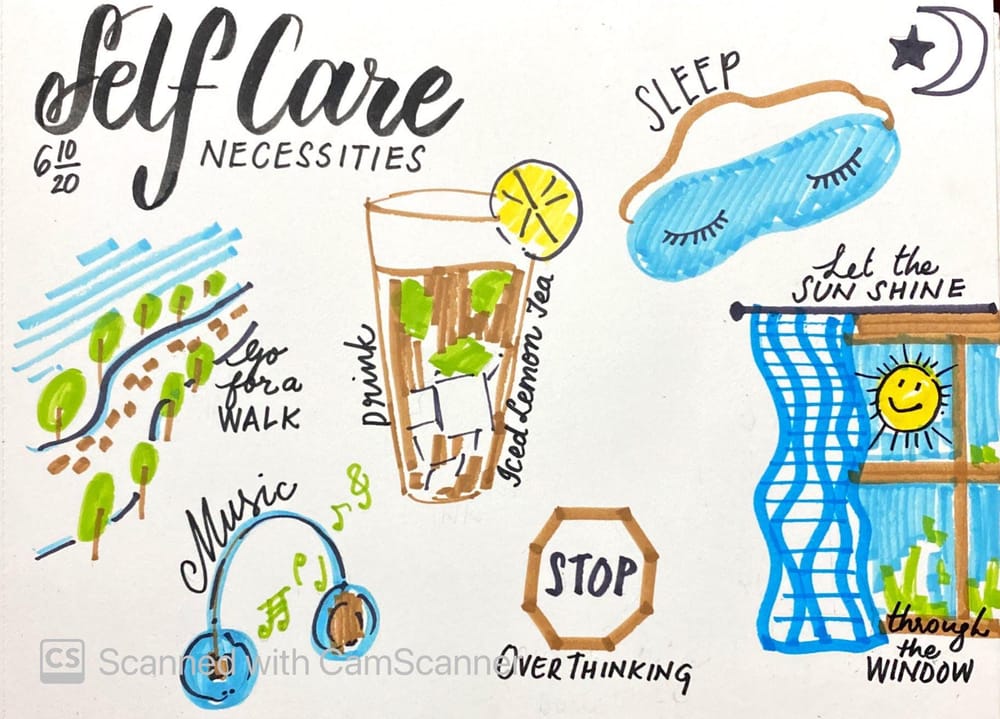 Self Care
NECESSITIES
6 10/20
SLEEP
Let the
SUN SHINE
through
the
WINDOW
Drink
Iced Lemon Tea
Lego
for a
WALK
Music
STOP
OVERTHINKING
CS Scanned with CamScanner